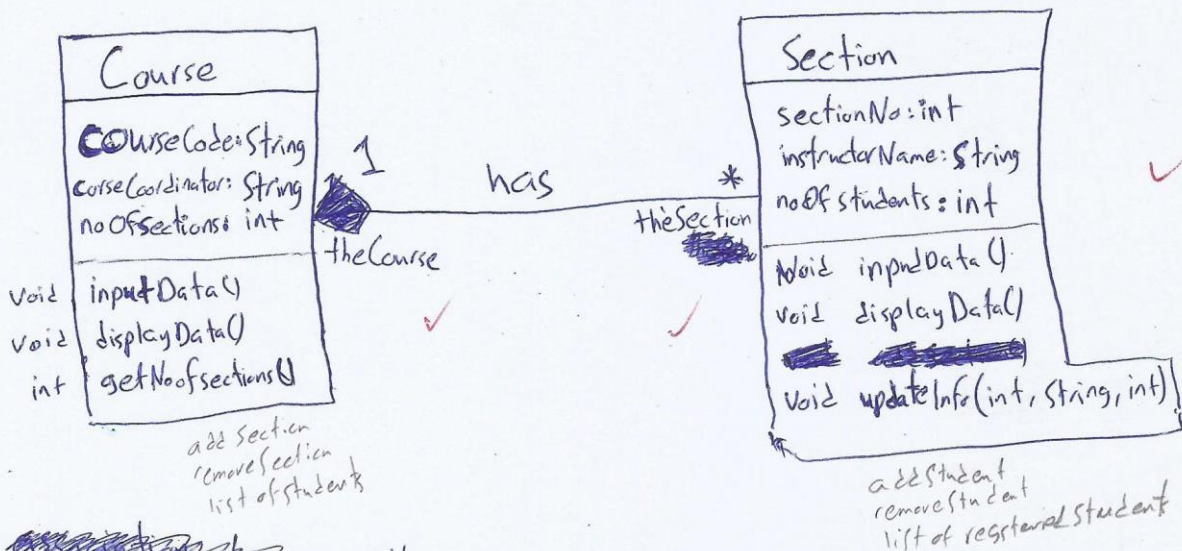 Course
CourseCode: String
corseCoordinator: String
noOfsections: int
void inputData()
void displayData()
int getNoofsections()
add section
removeSection
list of students
1
has
*
theCourse
theSection
Section
sectionNo: int
instructorName: String
noOf students: int
void inputData()
void displayData()
void updateInfo(int, String, int)
addStudent
removeStudent
list of registeried Students